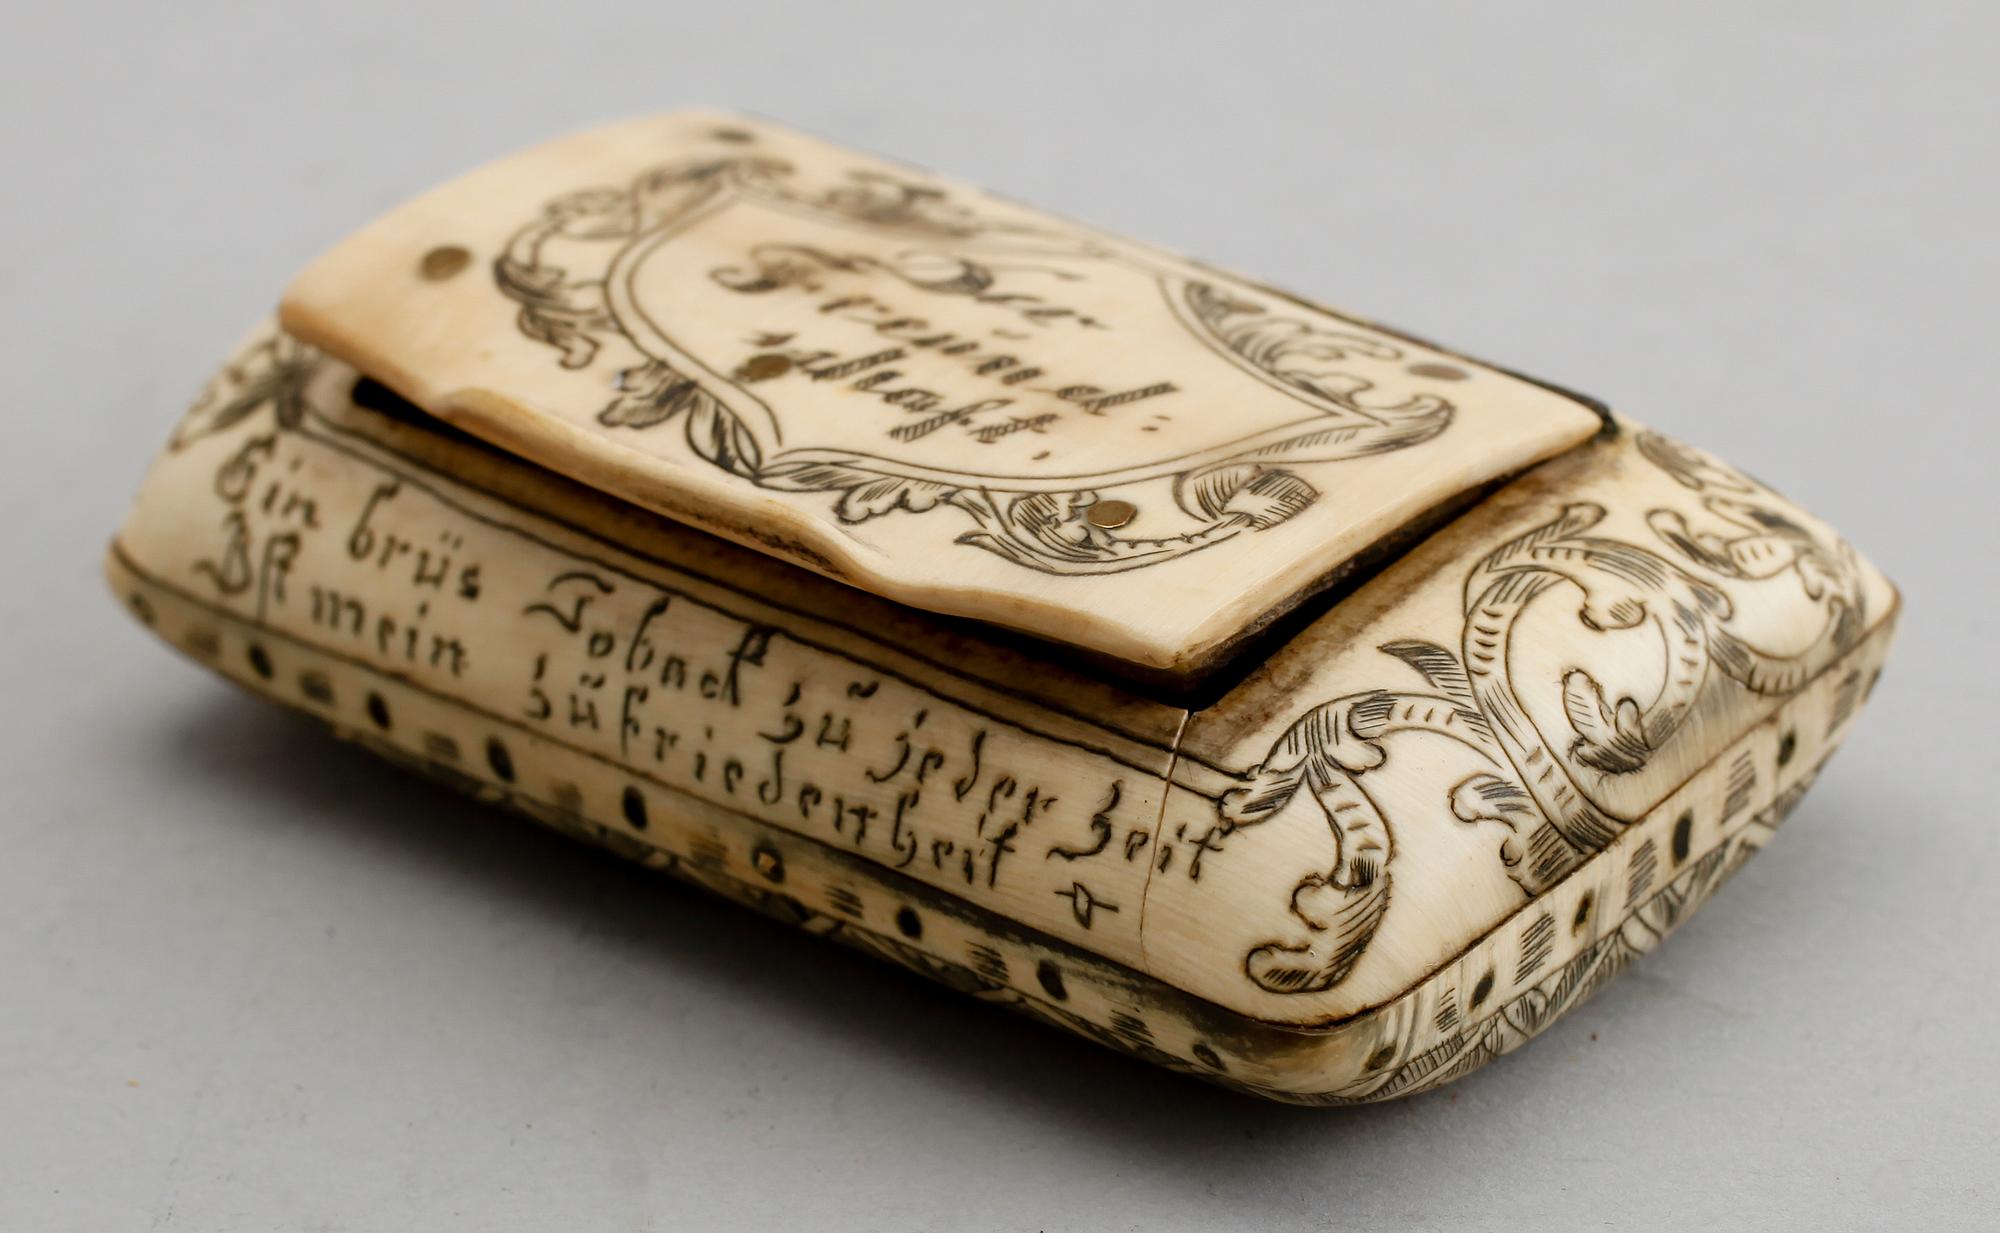 Der
Freund
Ein brüs Toback zü jeder Zeit
Ist mein züfriedenheit